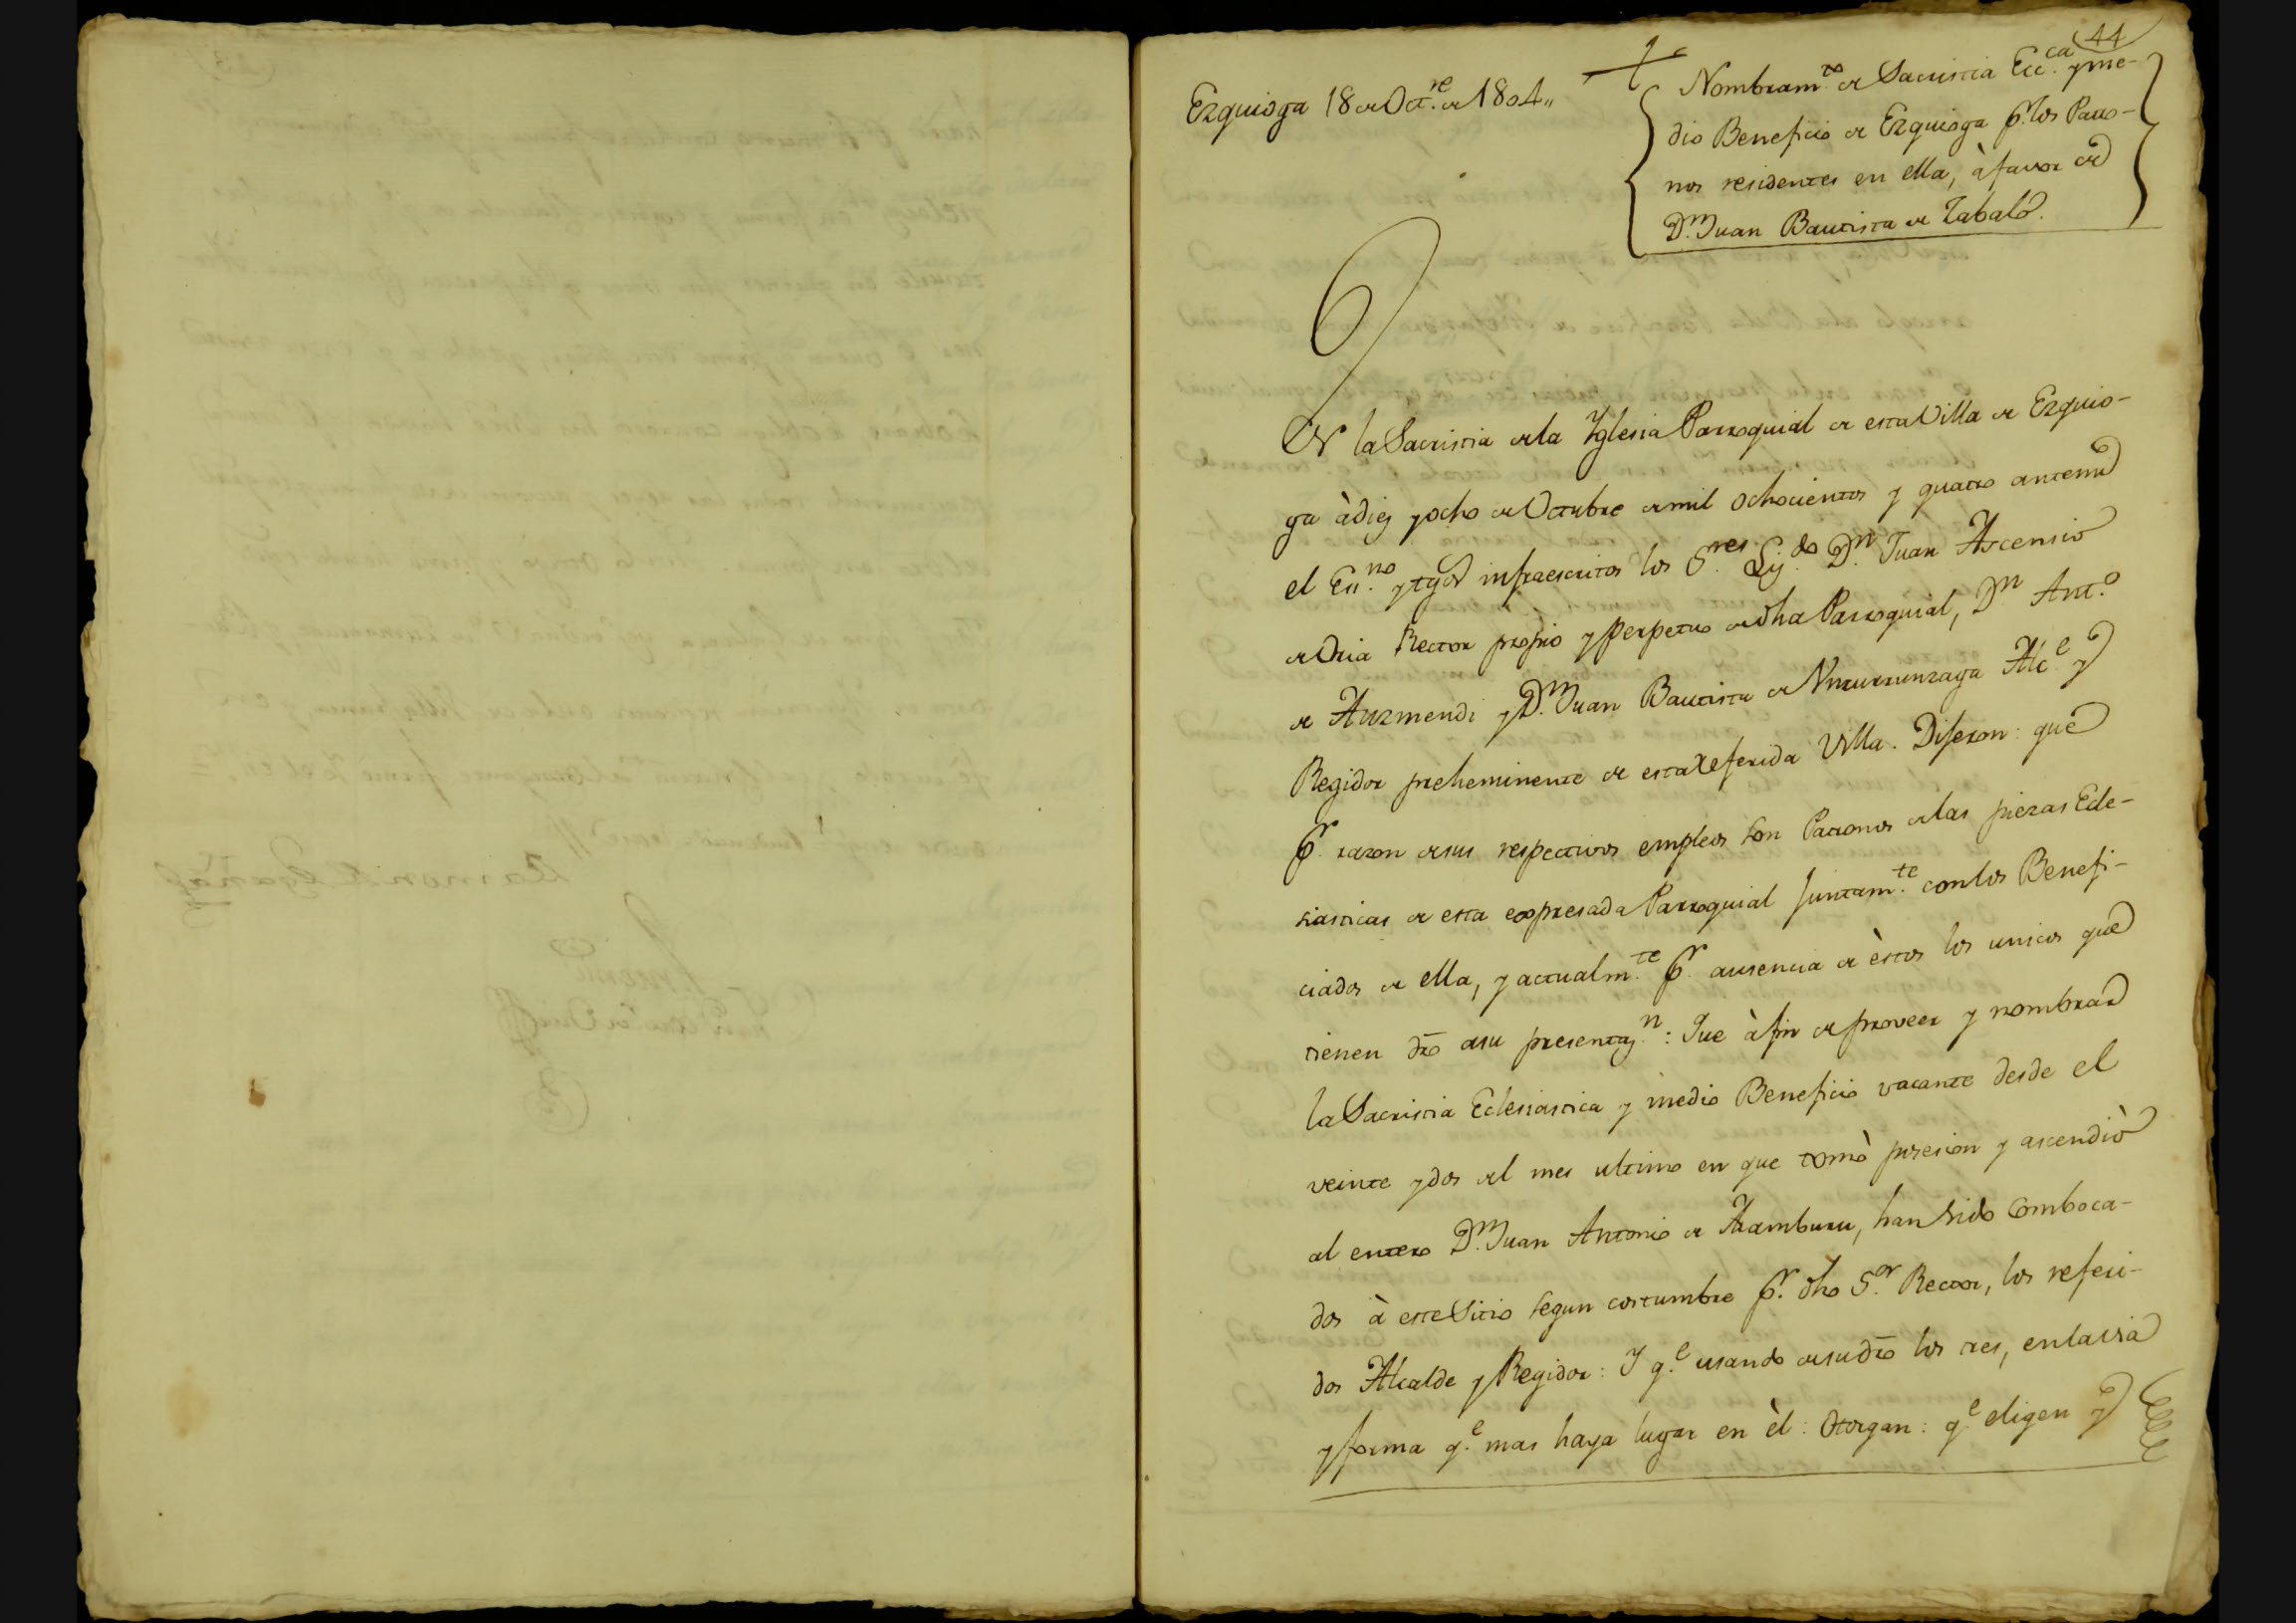 44
Ezquioga 18 de Oct.re de 1804,,
Nombram.to de Sacristia Ecc.ca y me-
dio Beneficio de Ezquioga p.r los Patro-
nos residentes en ella, à favor de
D.n Juan Bautista de Zabalo.
En la Sacristia de la Yglesia Parroquial de esta Villa de Ezquio-
ga à diez y ocho de Octubre de mil ochocientos y quatro ante mi
el Ess.no y tgos infraescritos los S.res Liz.do D.n Juan Ascensio
de Oria Rector propio y Perpetuo de dha Parroquial, D.n Ant.o
de Auzmendi y D.n Juan Bautista de Nurcunzaga Alc.e y
Regidor preheminente de esta referida Villa. Dijeron: que
p.r razon de sus respectivos empleos son Patronos de las piezas Ecle-
siasticas de esta expresada Parroquial juntam.te con los Benefi-
ciados de ella, y actualm.te p.r ausencia de èstos los unicos que
tienen dro a su presentaz.n: Que à fin de proveer y nombrar
la Sacristia Eclesiastica y medio Beneficio vacante desde el
veinte y dos del mes ultimo en que tomò posesion y ascendiò
al entero D.n Juan Antonio de Aramburu, han sido comboca-
dos à este Sitio segun costumbre p.r dho S.or Rector, los referi-
dos Alcalde y Regidor: Y q.e usando de su dro los tres, en la via
y forma q.e mas haya lugar en èl: Otorgan: q.e eligen y